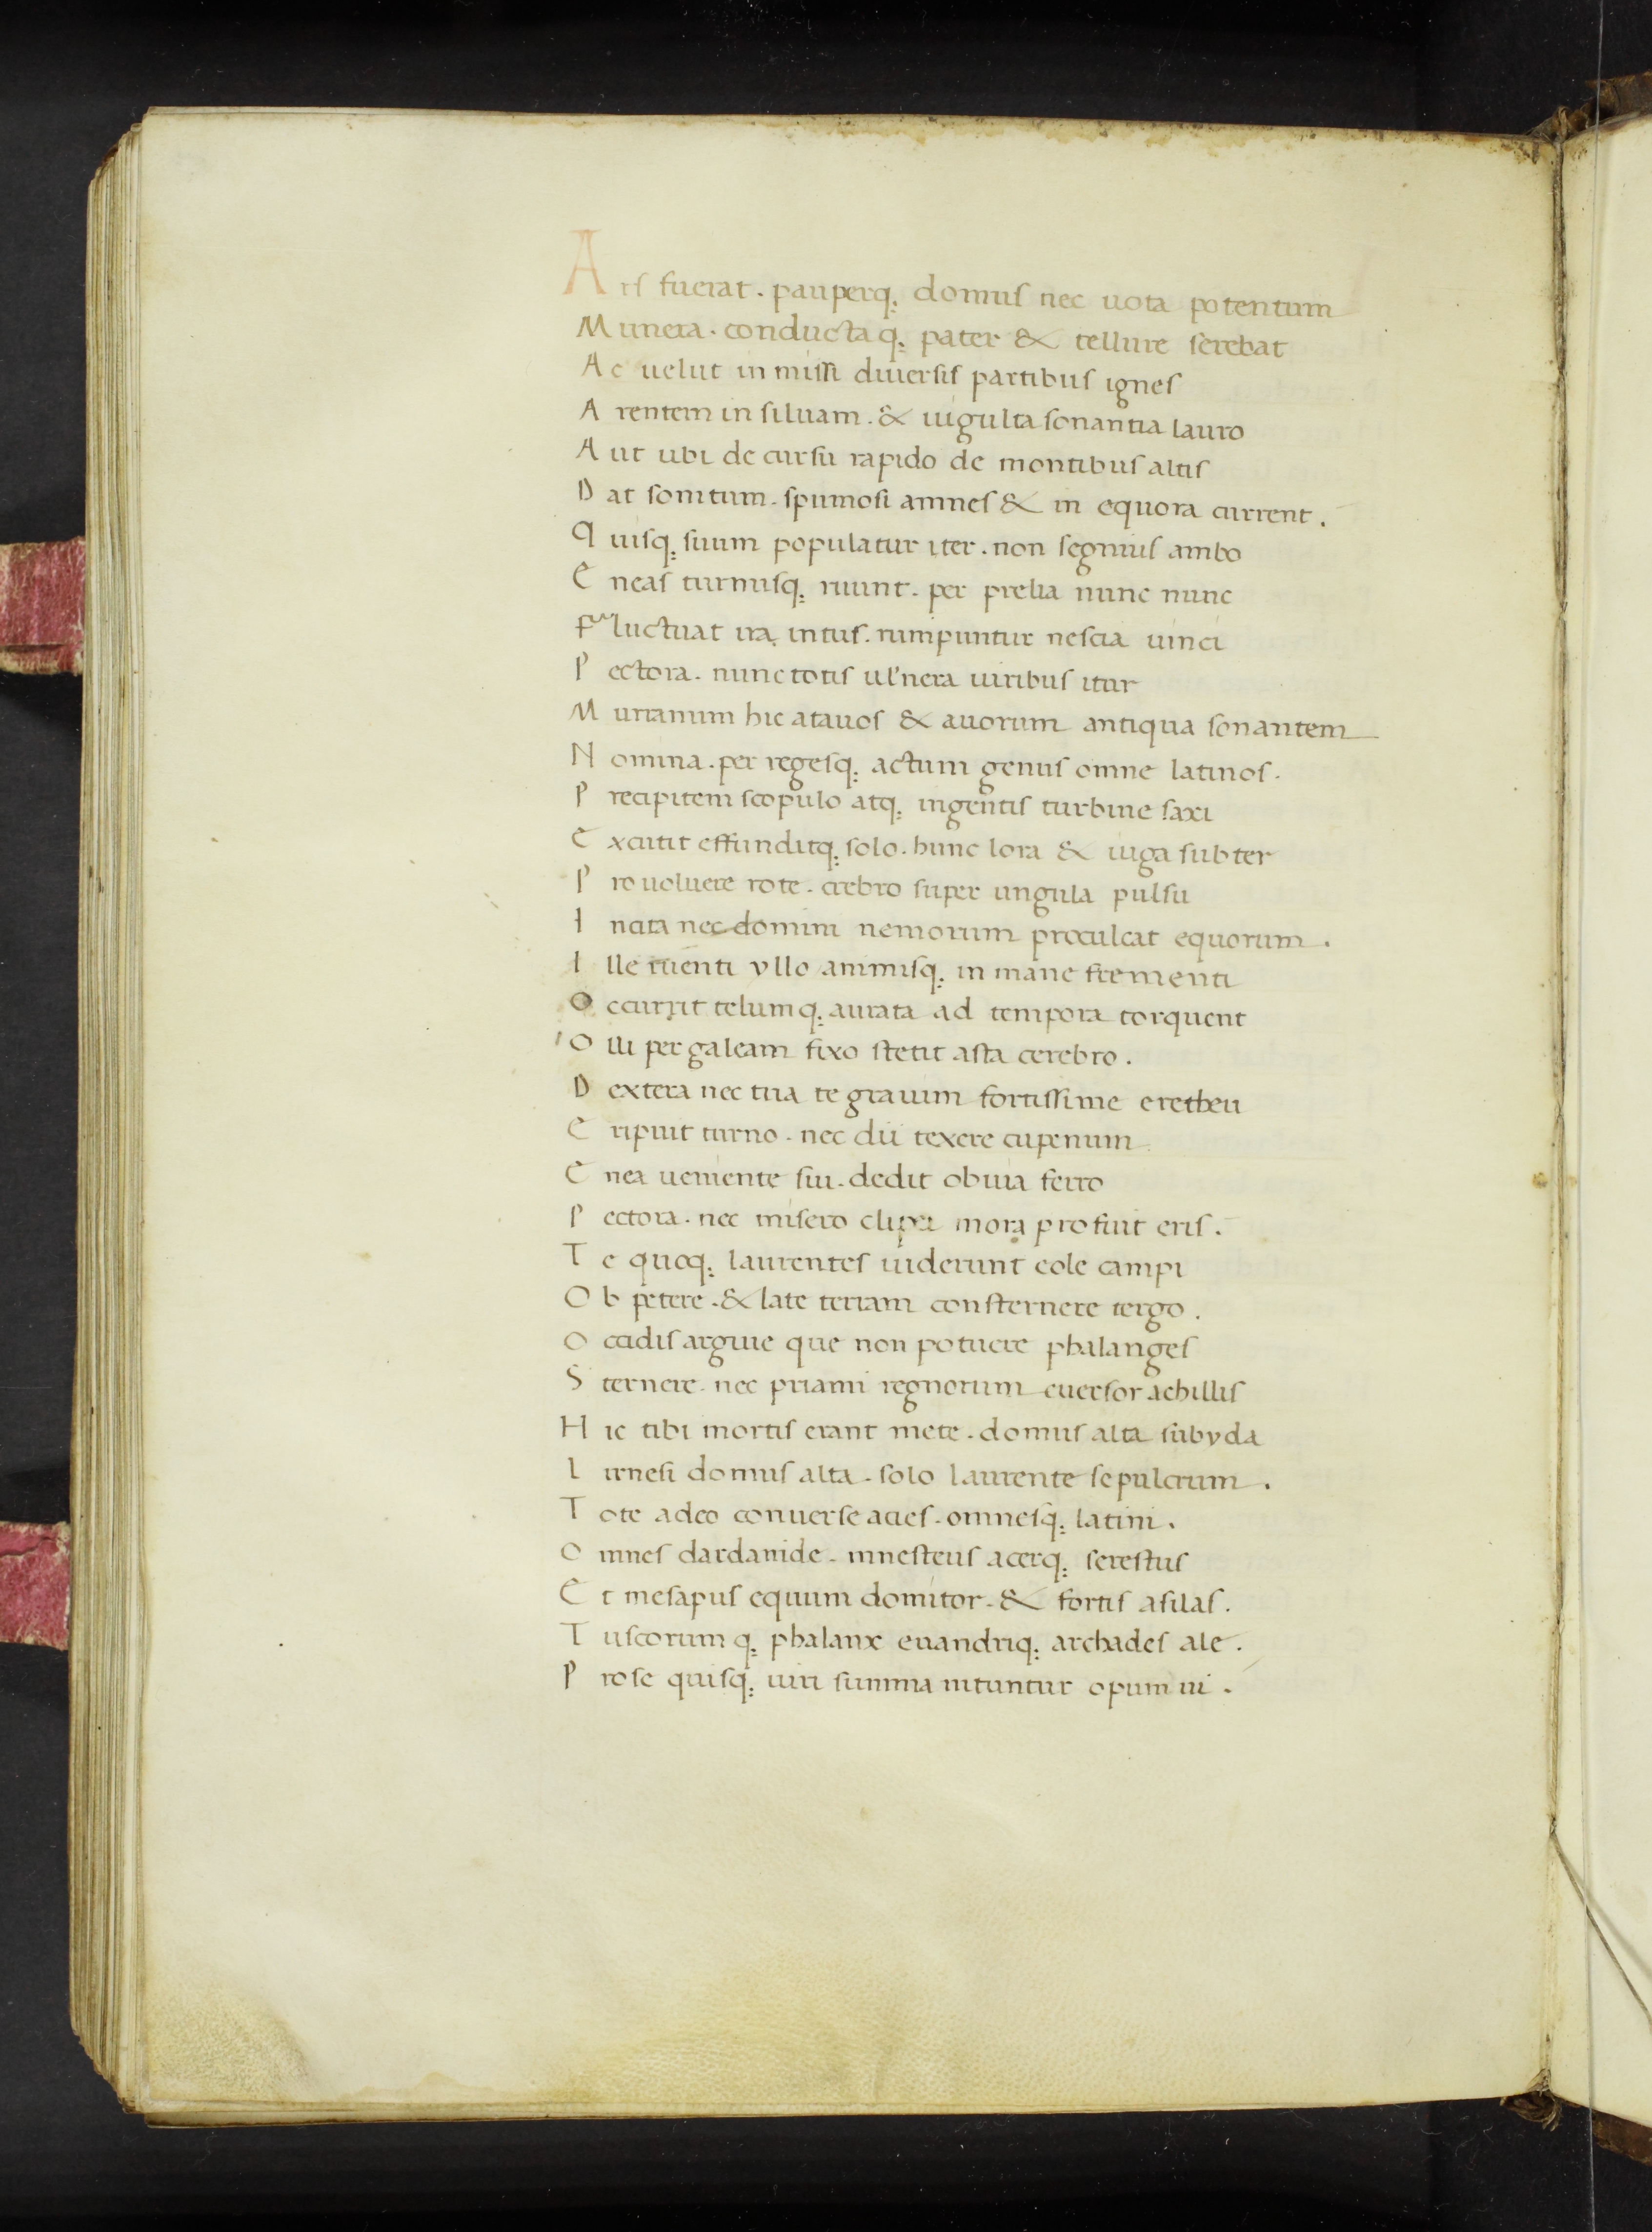 Ars fuerat. pauperq; domus nec uota potentum
Munera. conductaq; pater & tellure serebat
Ac uelut in missi diuersis partibus ignes
Arentem in siluam. & uigulta sonantia lauro
Aut ubi de cursu rapido de montibus altis
Dat sonitum. spumosi amnes & in equora current.
Quisq; suum populatur iter. non segnius ambo
Eneas turnusq; ruunt. per prelia nunc nunc
Fluctuat ira intus. rumpuntur nescia uinci
Pectora. nunc totis ul'nera uiribus itur
Murranum hic atauos & auorum antiqua sonantem
Nomina. per regesq; actum genus omne latinos.
Precipitem scopulo atq; ingentis turbine saxi
Excutit effunditq; solo. hunc lora & iuga subter
Prouoluere rote. crebro super ungula pulsu
Incita nec domini nemorum proculcat equorum.
Ille ruenti yllo animisq; in mane frementi
Occurrit telumq; aurata ad tempora torquent
Olli per galeam fixo stetit asta cerebro.
Dextera nec tua te graium fortissime eretheu
Eripuit turno. nec dii texere cupenum
Enea ueniente sui. dedit obuia ferro
Pectora. nec misero clipei mora profuit eris.
Te quoq; laurentes uiderunt eole campi
Ob petere. & late terram consternere tergo.
Occidis argiue que non potuere phalanges
Sternere. nec priami regnorum euersor achillis
Hic tibi mortis erant mete. domus alta sub yda
Lirnesi domus alta. solo laurente sepulcrum.
Tote adeo conuerse acies. omnesq; latini.
Omnes dardanide. mnesteus acerq; serestus
Et mesapus equum domitor. & fortis asilas.
Tuscorumq; phalanx euandriq; archades ale.
Pro se quisq; uiri summa nituntur opum ui.